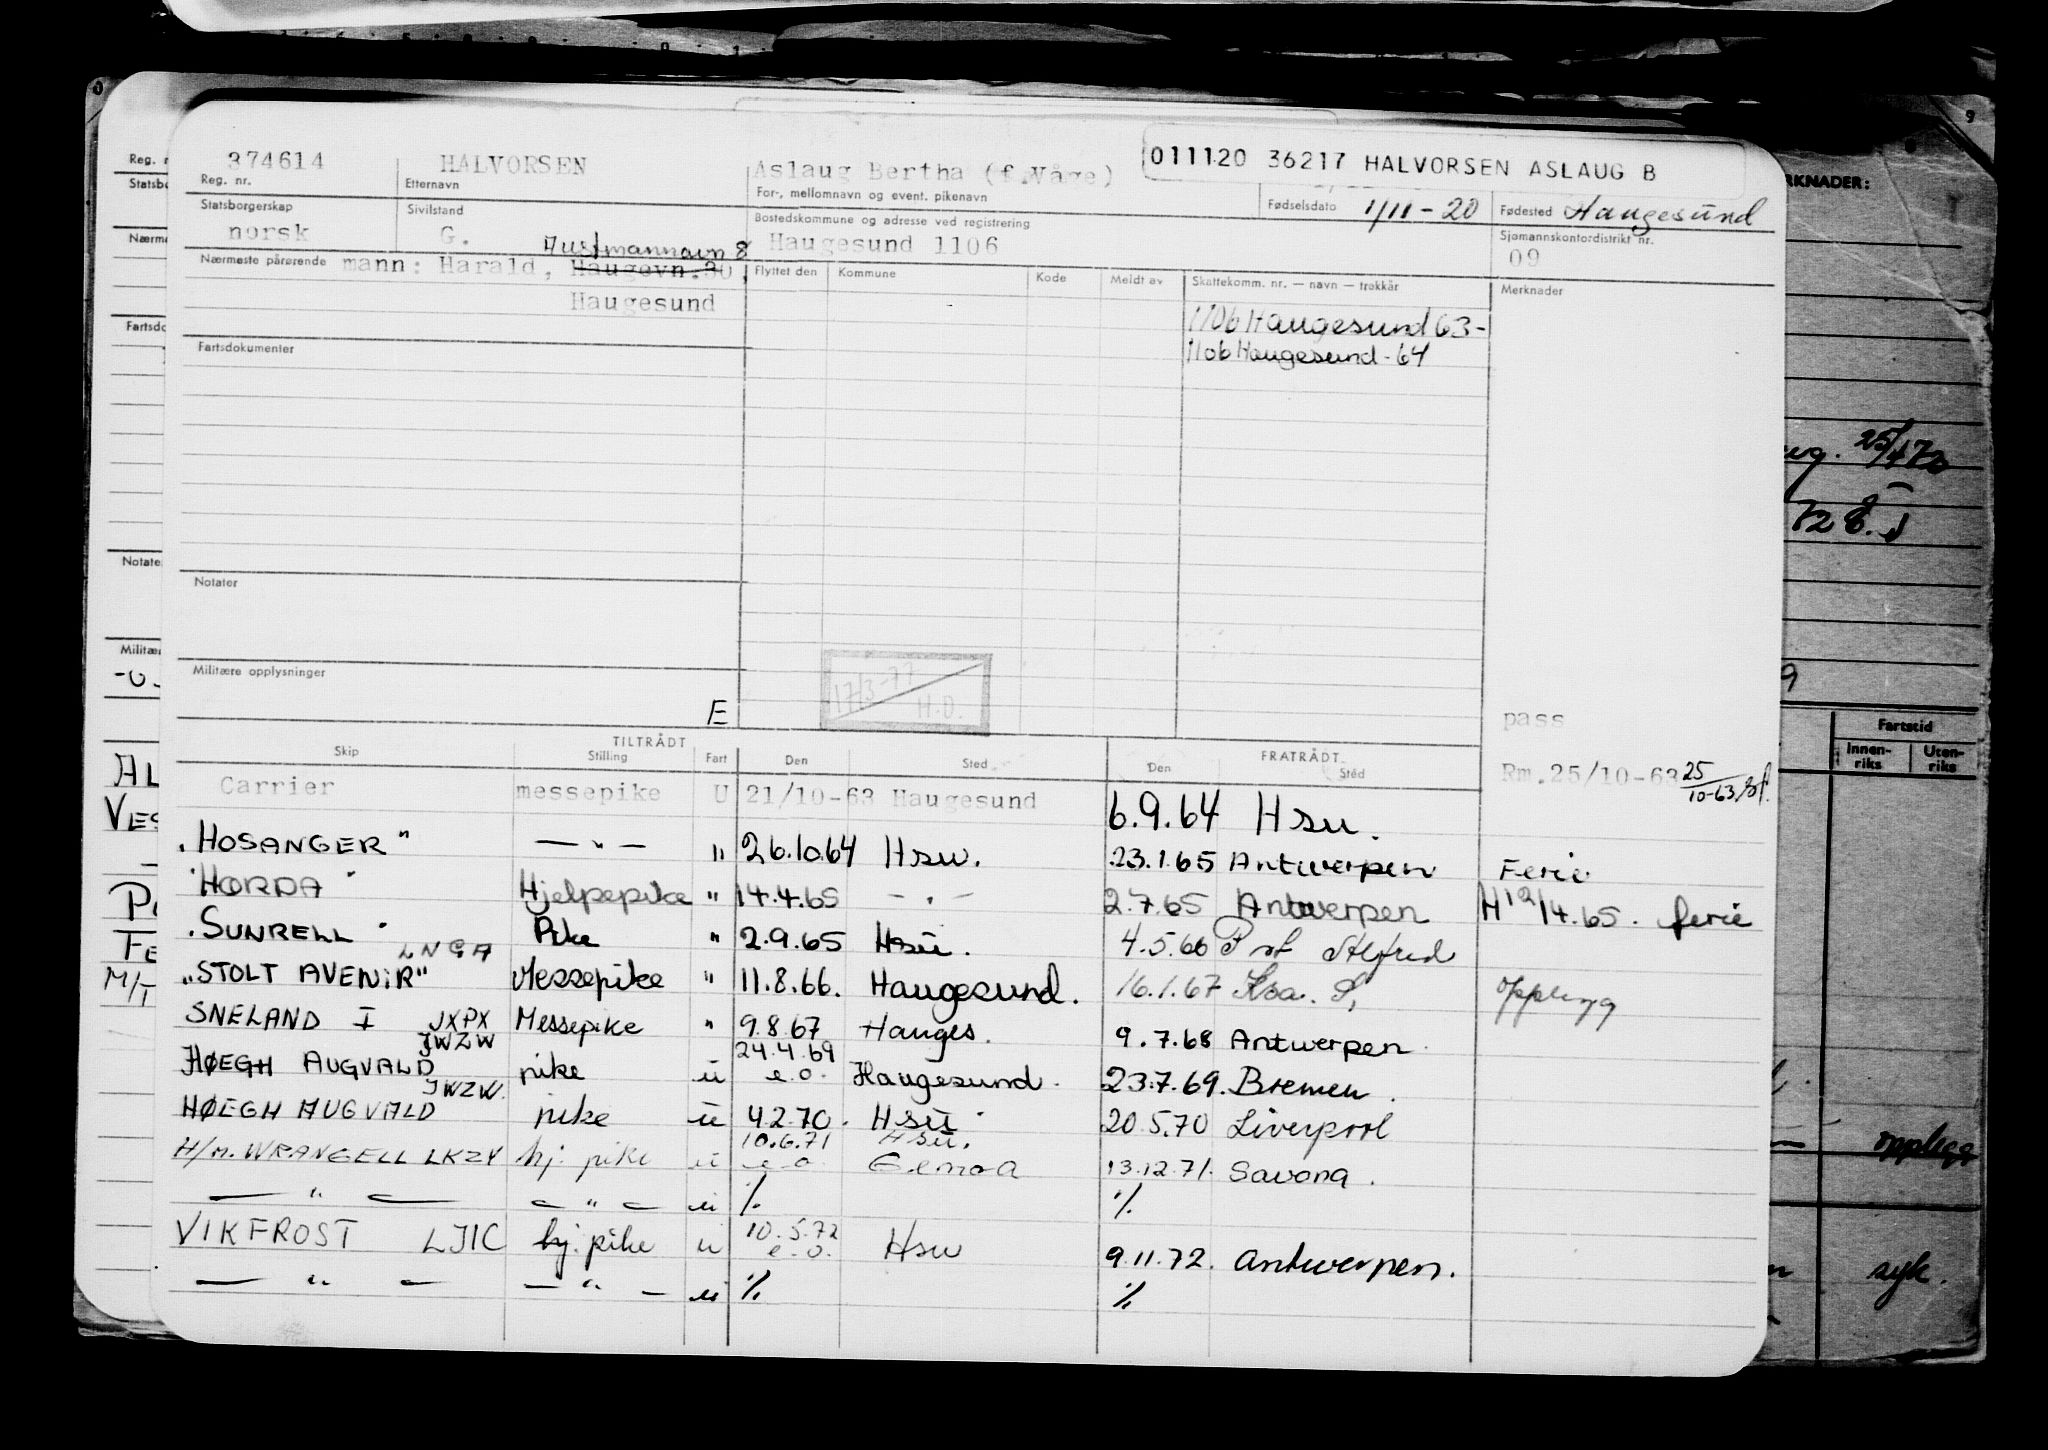 011120 36217 HALVORSEN ASLAUG B
374614 HALVORSEN Aslaug Bertha (f.Våge)
Reg. nr. Etternavn For-, mellomnavn og event. pikenavn Fødselsdato 1/11-20 Fødested Haugesund
Statsborgerskap Sivilstand Bostedskommune og adresse ved registrering Sjømannskontordistrikt nr.
norsk G. Haugesund 1106 09
Nærmeste pårørende mann: Harald, Haugevn.30, Flyttet den Kommune Kode Meldt av Skattekomm. nr. — navn — trekkår Merknader
Haugesund
1106 Haugesund 63-
1106 Haugesund-64
Fartsdokumenter
Notater
Militære opplysninger
17/3-77
H.D.
E
pass
TILTRÅDT FRATRÅDT
Skip Stilling Fart Den Sted Den Sted
Rm.25/10-63 25/10-63
Carrier messepike U 21/10-63 Haugesund 6.9.64 Hsu.
"HOSANGER" — " — " 26.10.64 Hsu. 23.1.65 Antwerpen Ferie
"HORDA" Hjelpepike " 14.4.65 — " — 2.7.65 Antwerpen H12/4.65. ferie
"SUNRELL" Pike " 2.9.65 Hsu. 4.5.66 P rt Alfred
LNGA
"STOLT AVENIR" Messepike " 11.8.66. Haugesund. 16.1.67 opplegg
SNELAND I JXPX Messepike " 9.8.67 Hauges. 9.7.68 Antwerpen
JWZW 24.4.69
HØEGH AUGVALD pike u e.o. Haugesund. 23.7.69. Bremen.
JWZW.
HØEGH AUGVALD pike u 4.2.70. Hsu. 20.5.70 Liverpool
10.6.71 Hsu.
H/M. WRANGELL LKZY hj. pike u e.o. Genoa 13.12.71. Savona.
— " — — " — u %. %.
VIKFROST LJIC hj. pike u 10.5.72 e.o. Hsu 9.11.72. Antwerpen.
— " — — " — u %. %.
RKNADER:
Fartstid
Innen-riks Uten-riks
opplegg
syk.